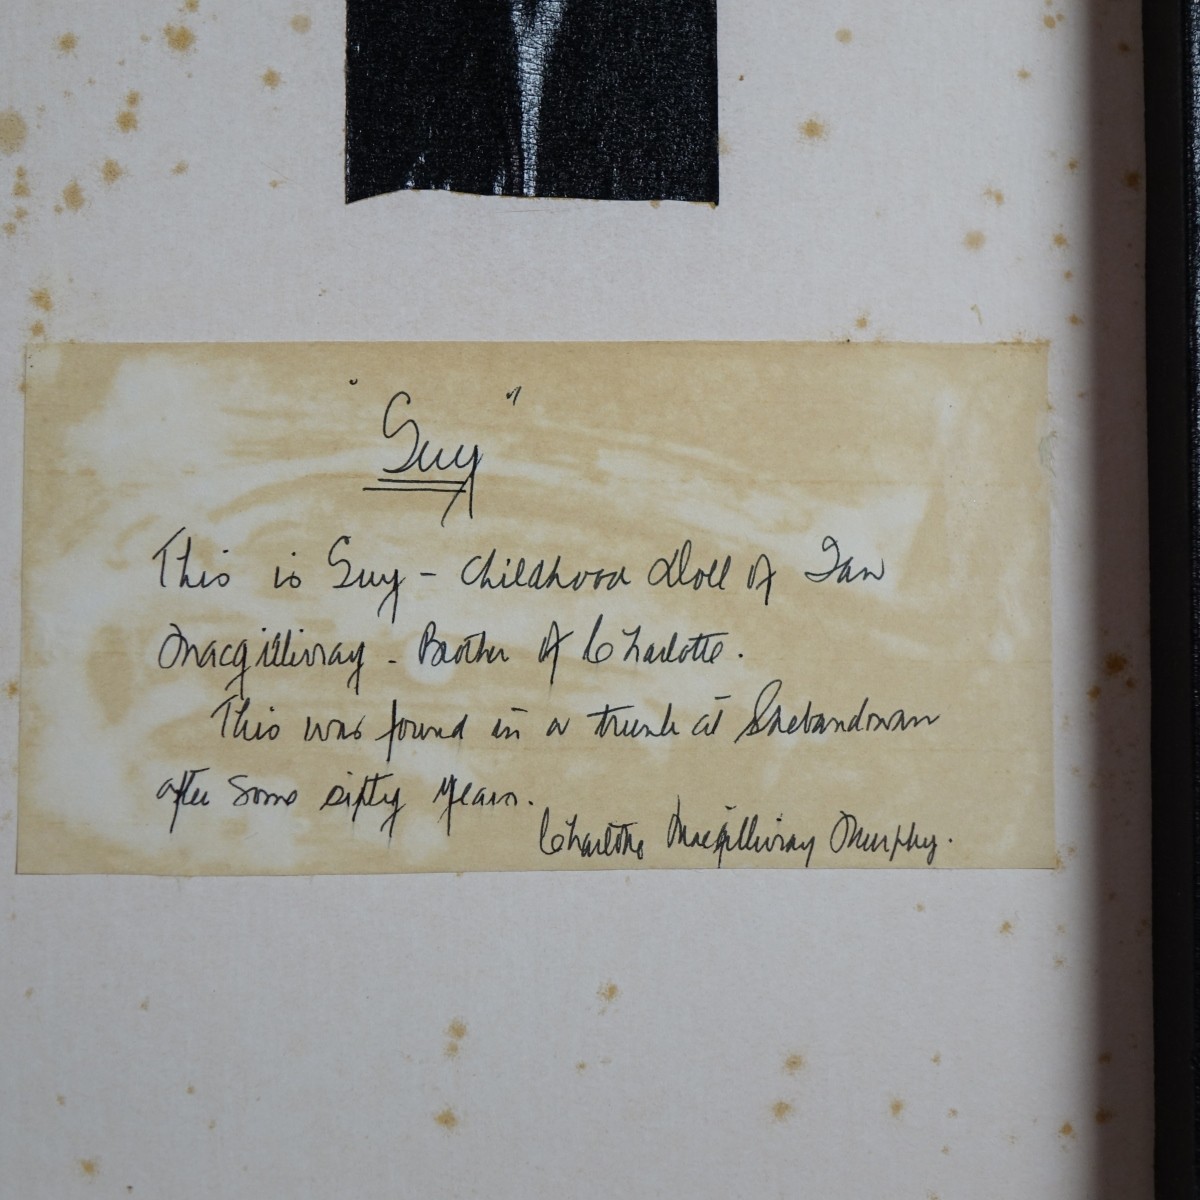 "Guy"
This is Guy - Childhood Doll of Ian
Macgillivray - Brother of Charlotte.
This was found in a trunk at Shebandowan
after some sixty years.
Charlotte Macgillivray Murphy.